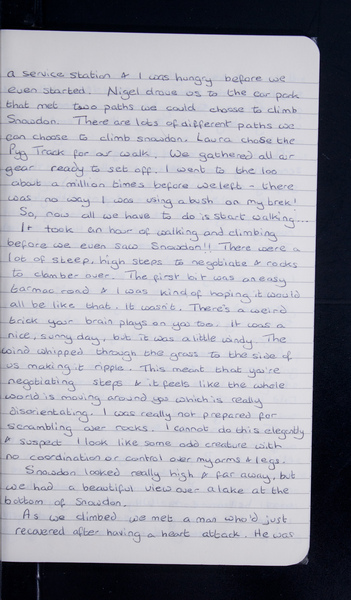 a service station & I was hungry before we
even started. Nigel drove us to the car park
that met two paths we could choose to climb
Snowdon. There are lots of different paths we
can choose to climb snowdon. Laura chose the
Pyg Track for our walk. We gathered all our
gear ready to set off. I went to the loo
about a million times before we left - there
was no way I was using a bush on my trek!
So, now all we have to do is start walking....
It took an hour of walking and climbing
before we even saw Snowdon!! There were a
lot of steep, high steps to negotiate & rocks
to clamber over. The first bit was an easy
tarmac road & I was kind of hoping it would
all be like that. It wasn't. There's a weird
trick your brain plays on you too. It was a
nice, sunny day, but it was a little windy. The
wind whipped through the grass to the side of
us making it ripple. This meant that you're
negotiating steps & it feels like the whole
world is moving around you which is really
disorientating. I was really not prepared for
scrambling over rocks. I cannot do this elegantly
& suspect I look like some odd creature with
no coordination or control over my arms & legs.
Snowdon looked really high & far away, but
we had a beautiful view over a lake at the
bottom of Snowdon.
As we climbed we met a man who'd just
recovered after having a heart attack. He was